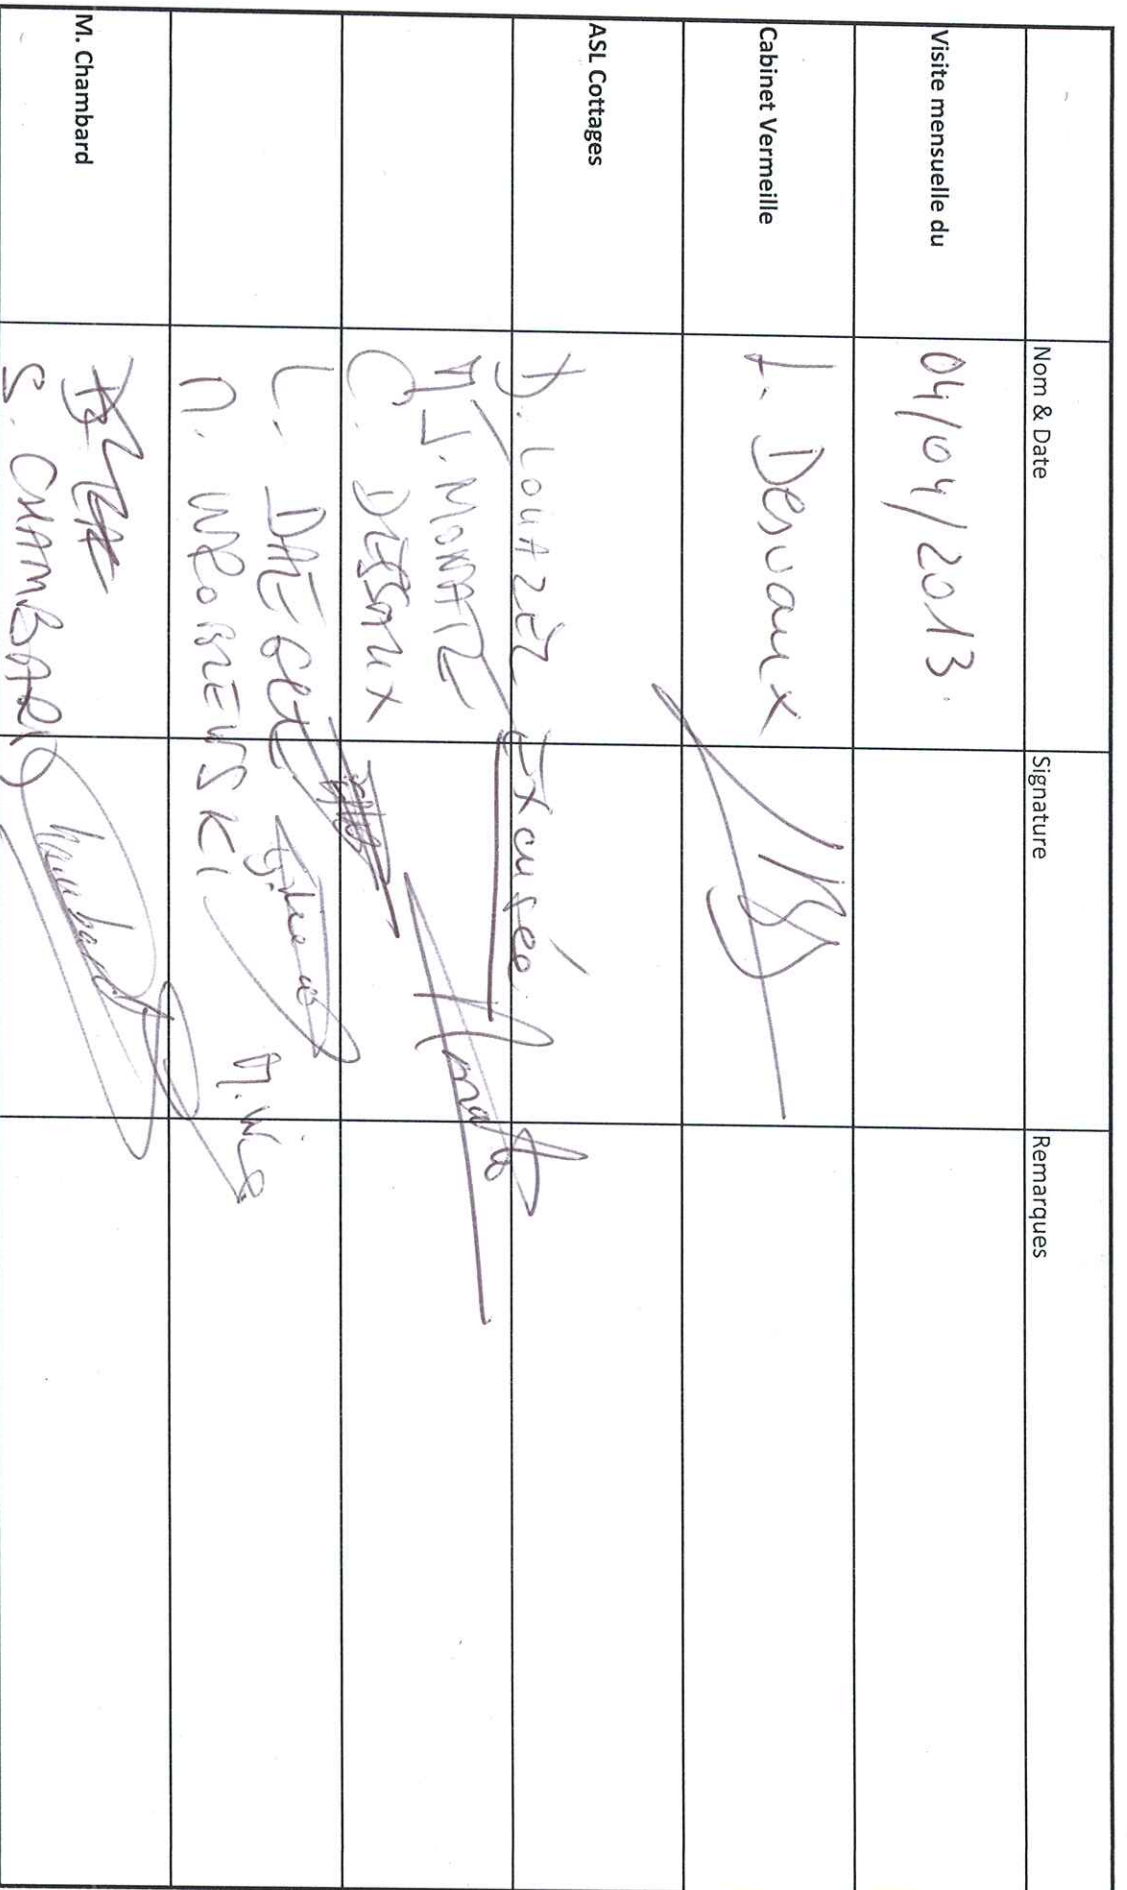 Nom & Date Signature Remarques
Visite mensuelle du 04/04/2013.
Cabinet Vermeille L. Desvaux
ASL Cottages D. LOUAZEL Excusé
M.J. MONATE
C. DESSAUX
L.
M. WROBLEWSKI M.W
M. Chambard
S. CHAMBARD Chambard